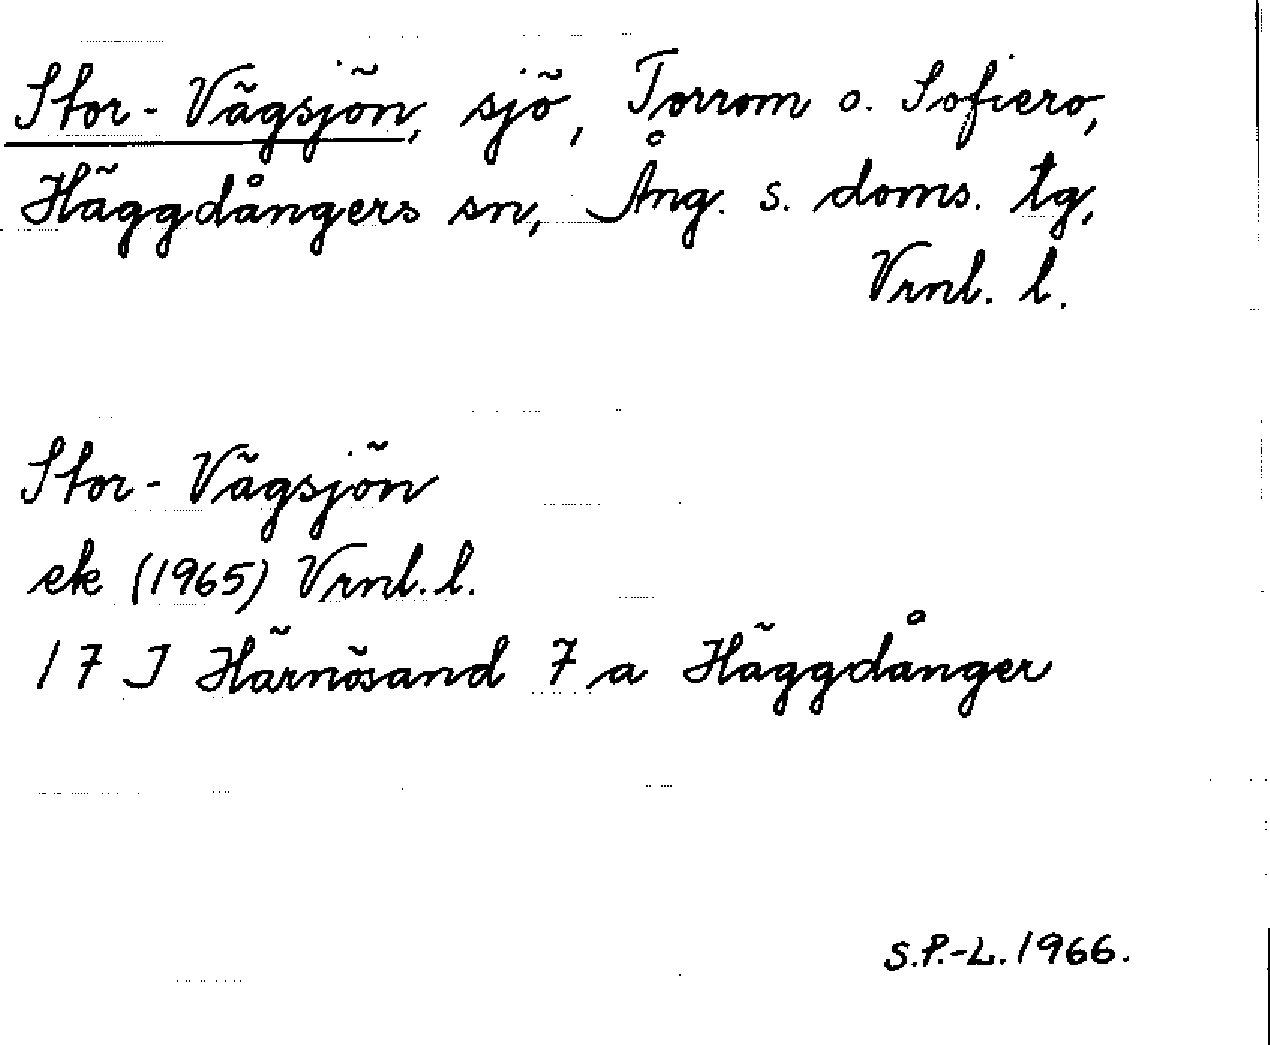 Stor-Vägsjön, sjö, Torrom o. Sofiero,
Häggdångers sn, Ång. s. doms. tg,
Vrnl. l.
Stor-Vägsjön
ek (1965) Vrnl. l.
17 I Härnösand 7 a Häggdånger
S.P.-L. 1966.